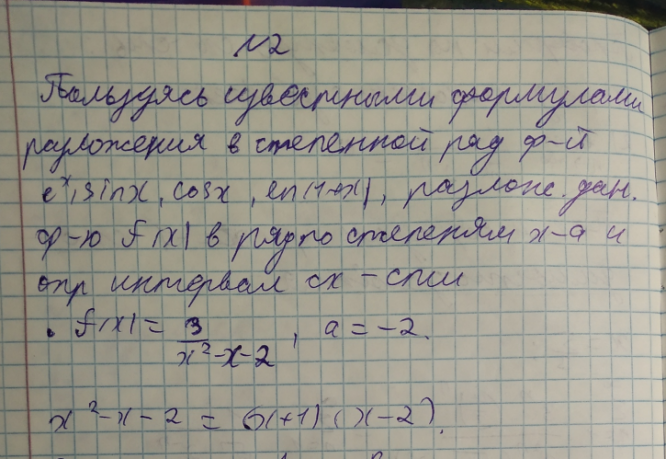 №2
Пользуясь известными формулами
разложения в степенной ряд ф-й
e^x, sinx, cosx, ln(1+x), разлож. дан.
ф-ю f(x) в ряд по степеням x-a и
опр интервал сх-сти
. f(x) = 3/(x²-x-2), a = -2.
x²-x-2 = (x+1)(x-2).